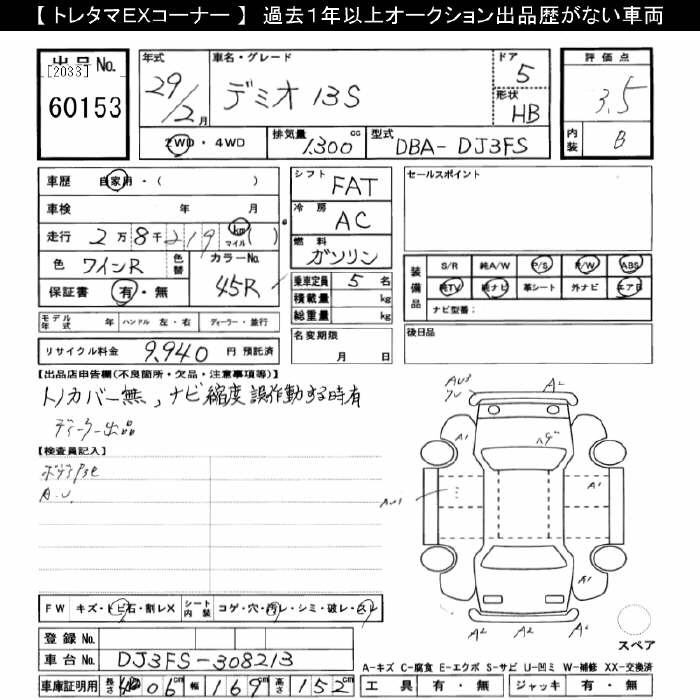 【 トレタマEXコーナー 】 過去1年以上オークション出品歴がない車両
出品 No.
[2033]
60153
年式 29/2月
車名・グレード デミオ 13S
ドア 5
形状 HB
評価点 3.5
内装 B
2WD・4WD
排気量 1,300 cc
型式 DBA- DJ3FS
車歴 自家用・( )
車検 年 月
走行 2万8千219 km マイル ( )
色 ワインR
色替
カラーNo. 45R
保証書 有・無
シフト FAT
冷房 AC
燃料 ガソリン
乗車定員 5 名
積載量 kg
総重量 kg
名変期限 月 日
セールスポイント
装備品
S/R 純A/W P/S P/W ABS
純TV 純ナビ 革シート 外ナビ エアB
ナビ型番:
後日品
モデル年式 年 ハンドル 左・右 ディーラー・並行
リサイクル料金 9,940 円 預託済
【出品店申告欄(不良箇所・欠品・注意事項等)】
トノカバー無、ナビ縮度誤作動する時有
ディーラー出品
【検査員記入】
A.U.
A2
A1
A1
A1
A2
A2
FW キズ・トビ石・割レX
シート内装 コゲ・穴・汚レ・シミ・破レ・スレ
登録 No.
車台 No. DJ3FS-308213
スペア
A-キズ C-腐食 E-エクボ S-サビ U-凹ミ W-補修 XX-交換済
車庫証明用 長さ 406 cm 幅 169 cm 高さ 152 cm
工具 有・無 ジャッキ 有・無